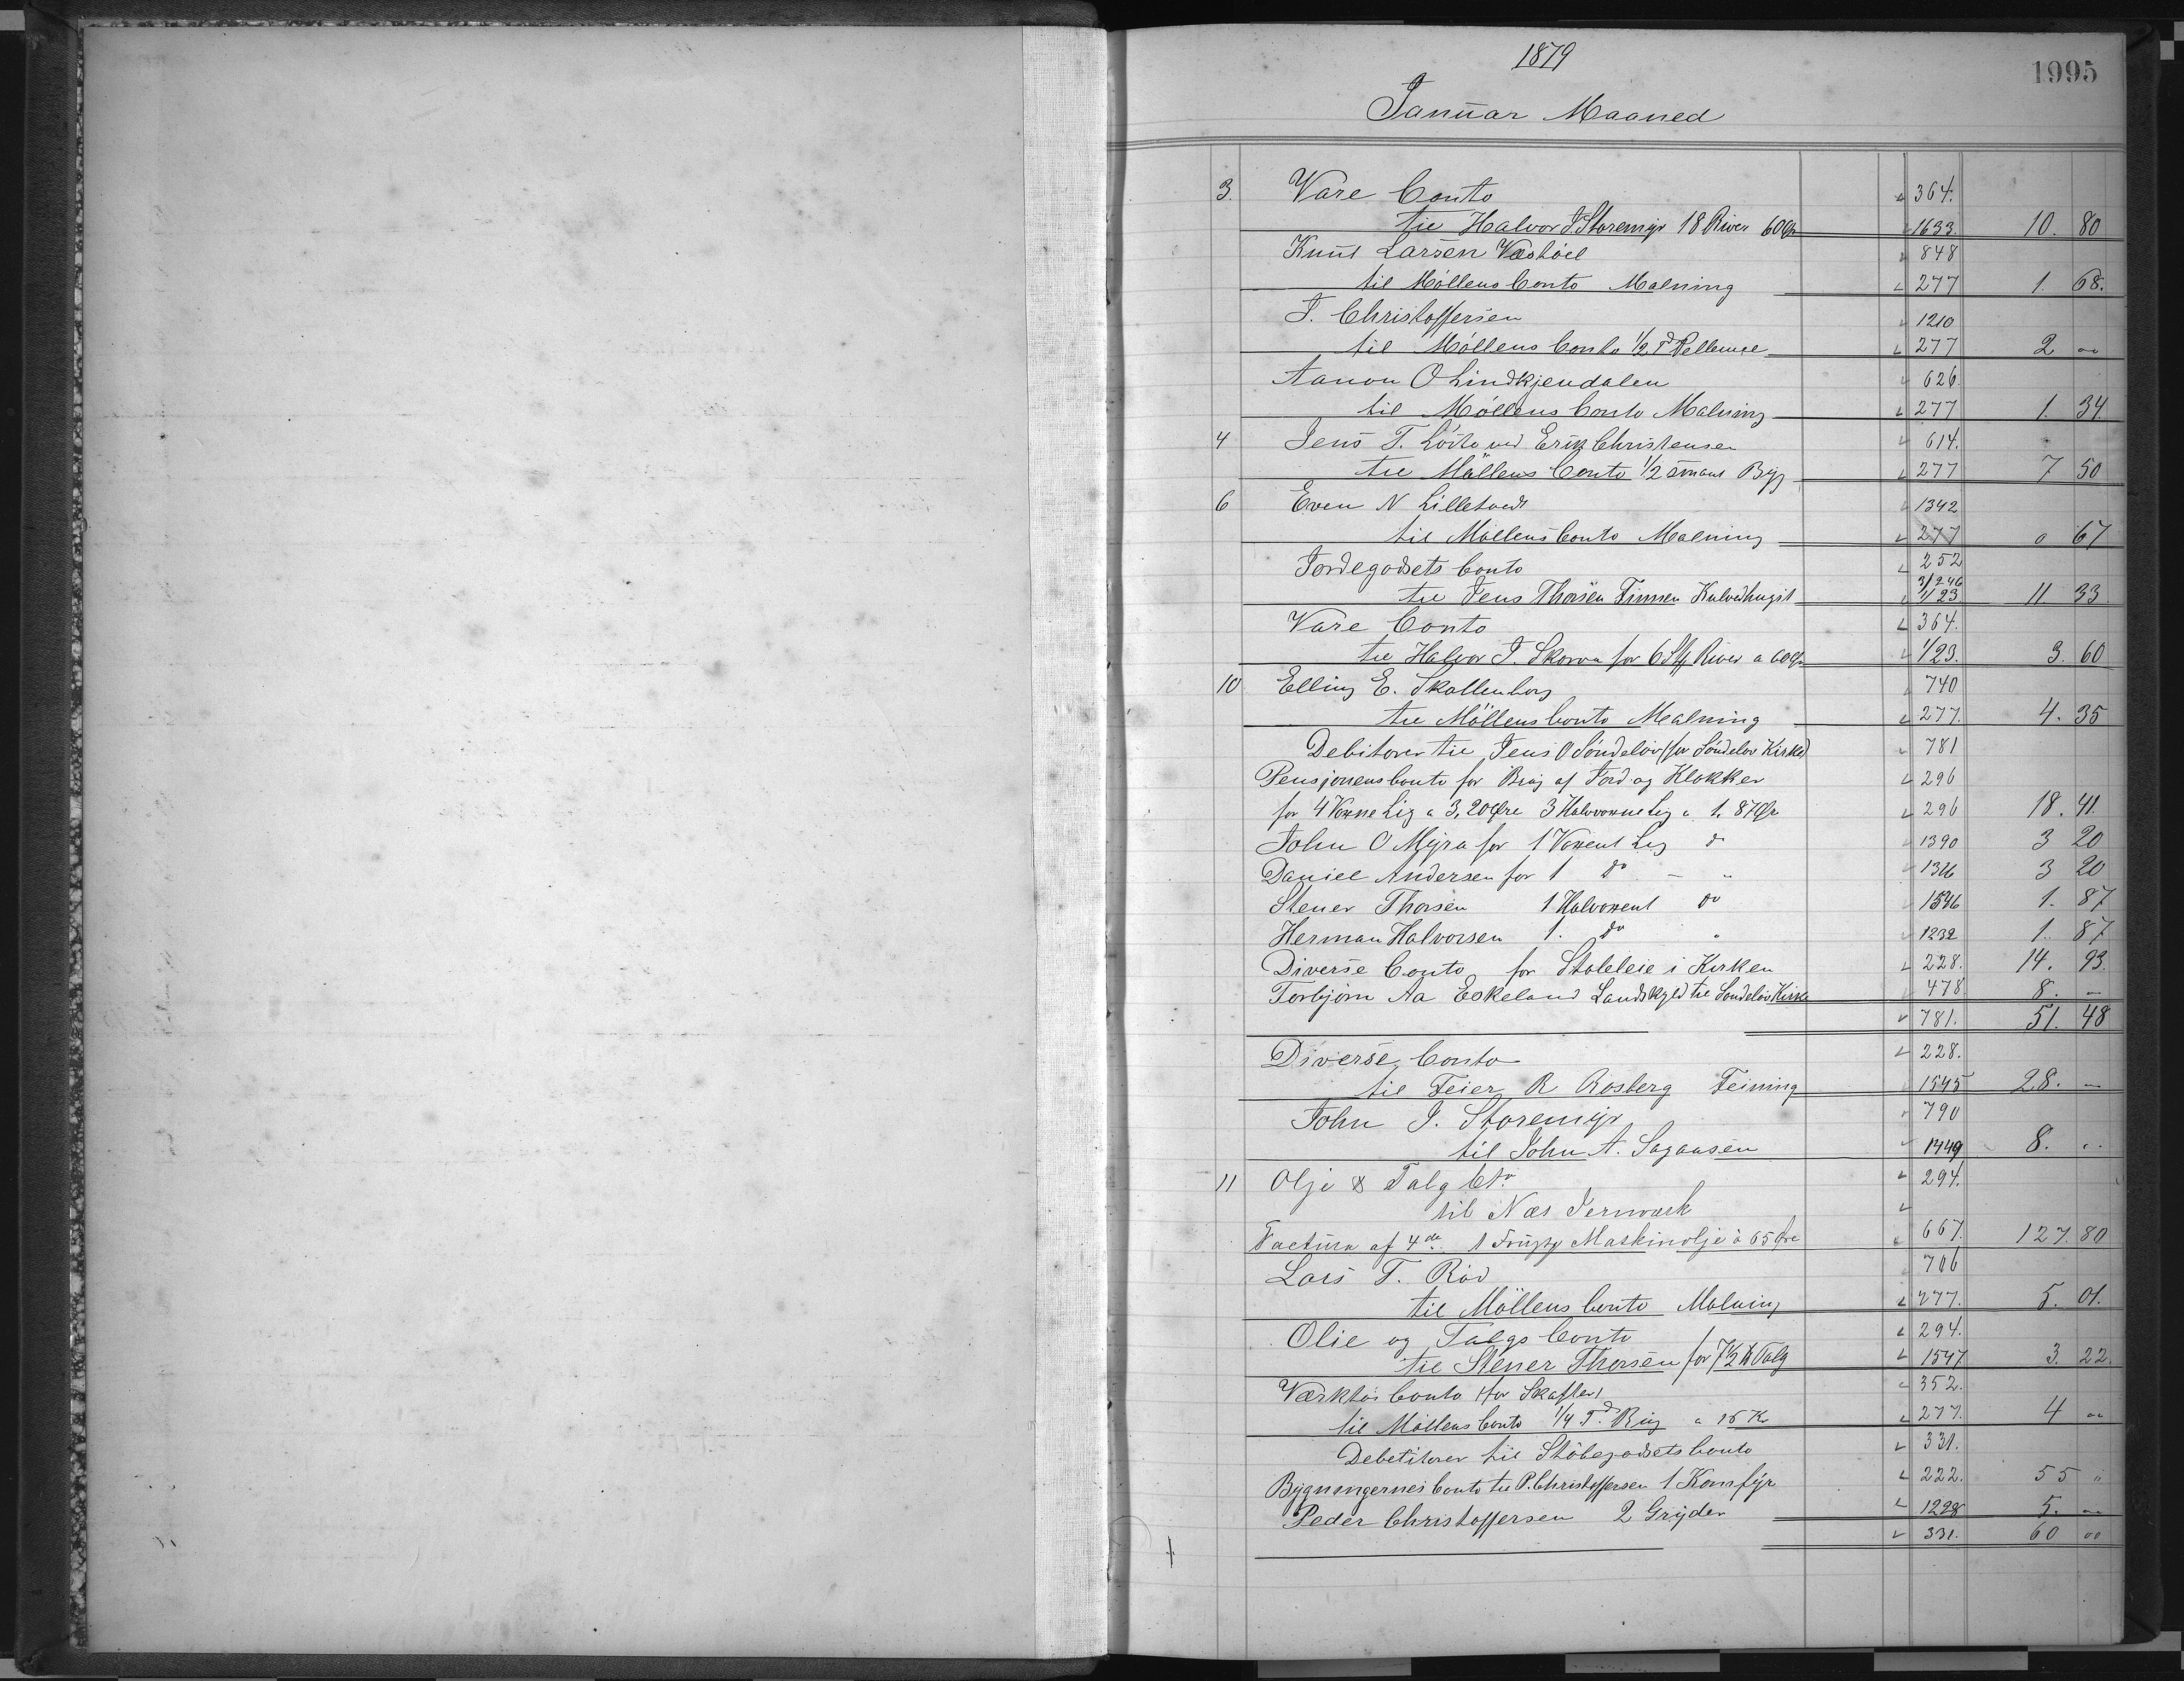 1879
1995
Januar Maaned
3. Vare Conto 364.
til Halvor J. Storemyr 18 River 60 Ør 1633. 10. 80
Knut Larsen 848
til Möllens Conto Malning 277 1. 68.
J. Christoffersen 1210
til Möllens Conto 1/2 Td 277 2 "
Aanon O Lindkjendalen 626.
til Möllens Conto Malning 277 1. 34
4 Jens T. ved Erik Christensen 614.
til Möllens Conto 1/2 Byg 277 7 50
6 Even N Lilletvedt 1342
til Möllens Conto Malning 277 0 67
Jordegodsets Conto 252
3/246
til Jens Thorsen Finnsen 1/23 11. 33
Vare Conto 364.
til Halvor J. Skorva for 6 Stk River a 60 Ør 1/23. 3. 60
10 Elling E. Skallenborg 740
til Möllens Conto Malning 277. 4. 35
Debitorer til Jens O Söndeløv (for Söndelöv Kirke) 781
Pensjonens Conto for Brug af Jord og Klokker 296
for 4 Voxne Lig a 3,20 Øre 3 Halvvoxne Lig a 1. 87 Ør 296 18. 41.
John O Myra for 1 Voxent Lig do 1390 3 20
Daniel Andersen for 1 do - " 1326 3 20
Stener Thorsen 1 Halvoxent do 1546 1. 87
Herman Halvorsen 1. do " 1232 1. 87
Diverse Conto for Stoleleie i Kirken 228. 14. 93.
Torbjörn Aa Eskeland Landskyld til Söndelöv Kirke 478 8. -
781. 51. 48
Diverse Conto 228.
til Feier R Rosberg Feining 1545 28. -
John J. Storemyr 790
til John A. Sagaasen 1449 8. "
11 Olje & Talg Cto 294.
til Næs Jernværk
Factura af 4de 1 Maskinolje à 65 Øre 667. 127. 80
Lars T. Röd 706
til Möllens Conto Malning 277. 5. 01.
Olie og Talgs Conto 294.
til Stener Thorsen for 7 1/2 Talg 1547 3. 22.
Værktøs Conto (for Skafter) 352.
til Möllens Conto 1/4 Td. Rug a 16 Kr 277. 4 "
Debetitorer til Stöbegodsets Conto 331.
Bygningernes Conto til P. Christoffersen 1 Komfyr 222. 55 "
Peder Christoffersen 2 Gryder 1228 5. "
331. 60 "